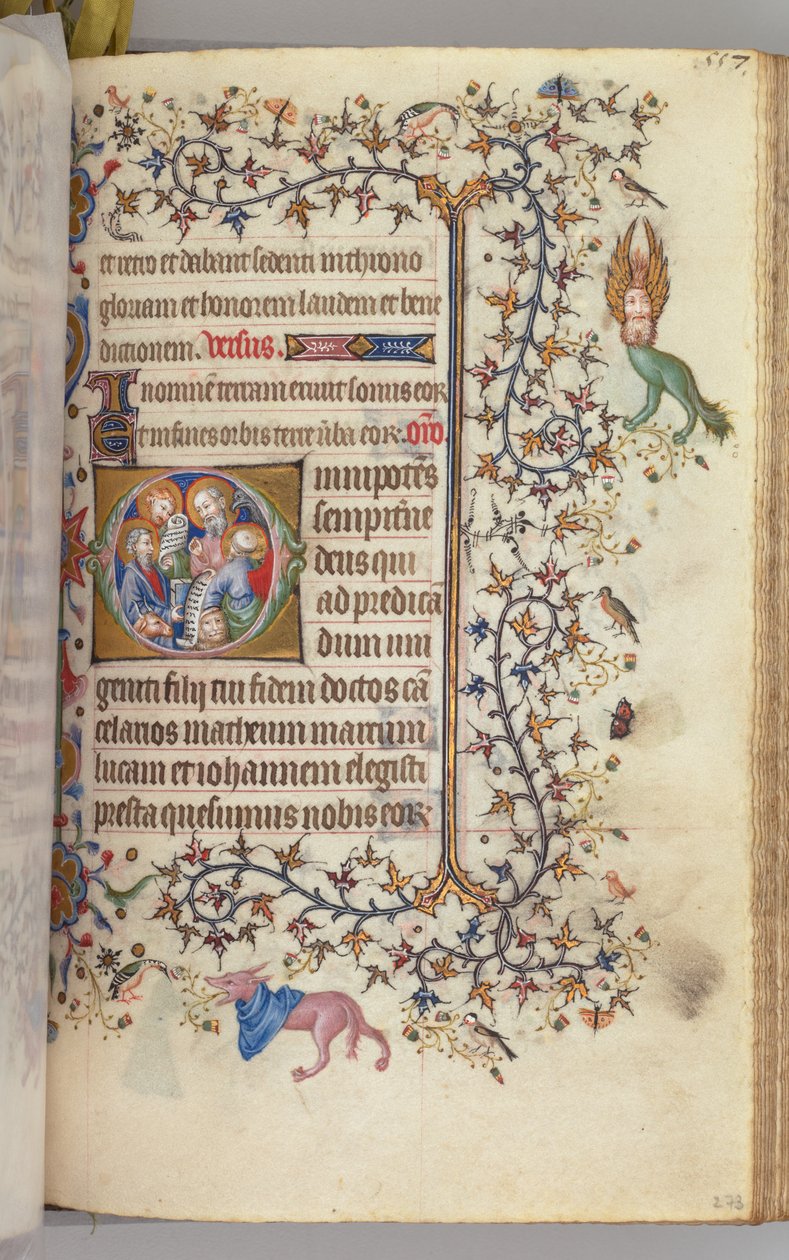 557
et retro et dabant sedenti in throno
gloriam et honorem laudem et bene
dictionem. Versus.
In omnẽ terram exivit sonus eoꝝ
Et in fines orbis terre ũba eoꝝ. Oro̅.
Omnipotẽs
sempitẽne
deus qui
ad predicã
dum uni
geniti filij tui fidem doctos cã
celarios matheum marcum
lucam et iohannem elegisti
presta quesumus nobis eoꝝ
273